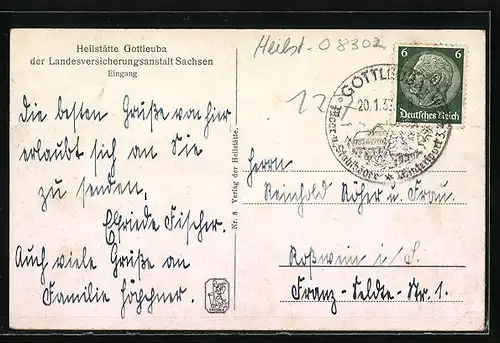 Heilstätte Gottleuba
der Landesversicherungsanstalt Sachsen
Eingang
Die besten Grüße von hier
erlaubt sich an Sie
zu senden,
Elfriede Fischer.
Auch viele Grüße an
Familie Höppner.
Nr. 8 Verlag der Heilstätte.
Heilst.-08302
12
6 6
Deutsches Reich
GOTTLEUBA
20.1.3
Herrn
Reinhold Röher u. Frau.
Roßwein i/S.
Franz-Seldte-Str. 1.